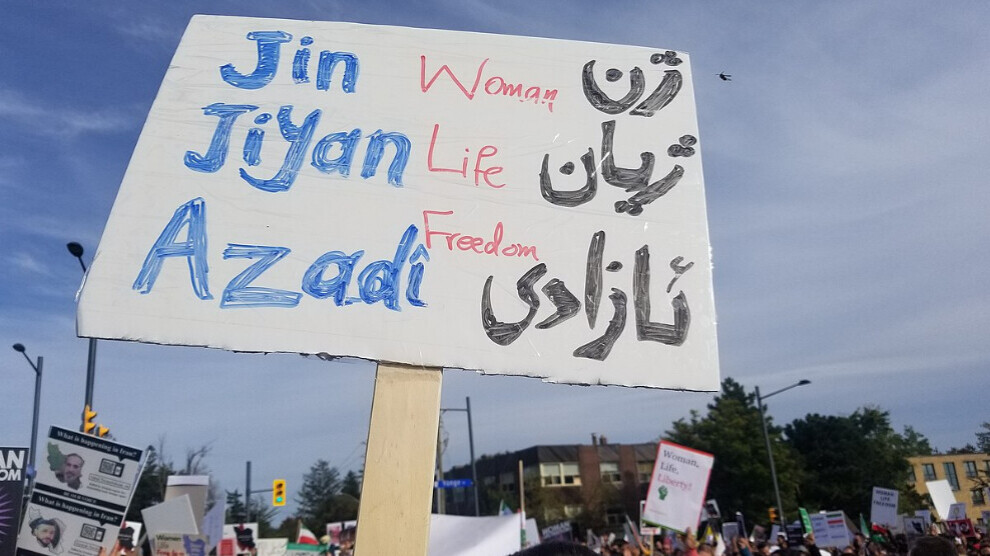 Jin Woman ژن
Jiyan Life ژیان
Azadî Freedom ئازادی
What is happening in Iran?
What is happening in Iran?
Woman,
Life,
Liberty!
Yonge